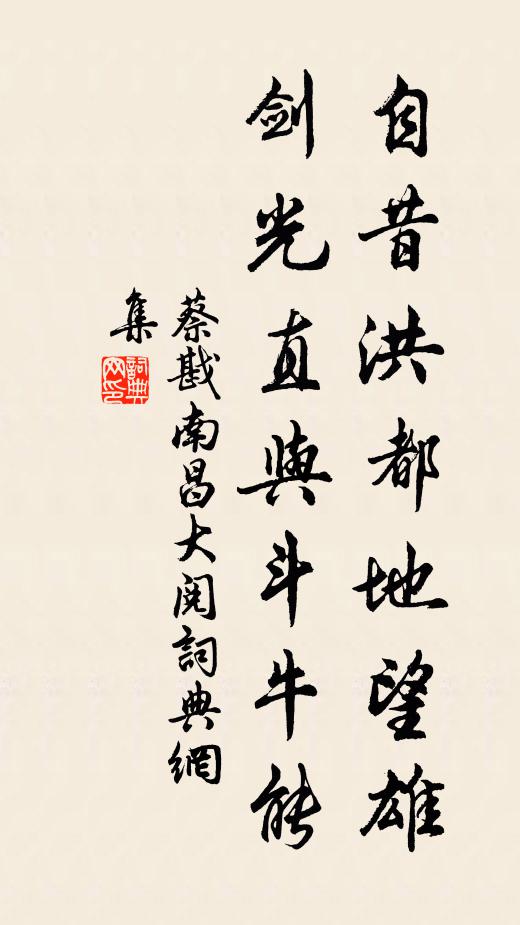 自昔洪都地望雄
剑光直與斗牛能
蔡戡南昌大阅詞典網
集
詞典
网印